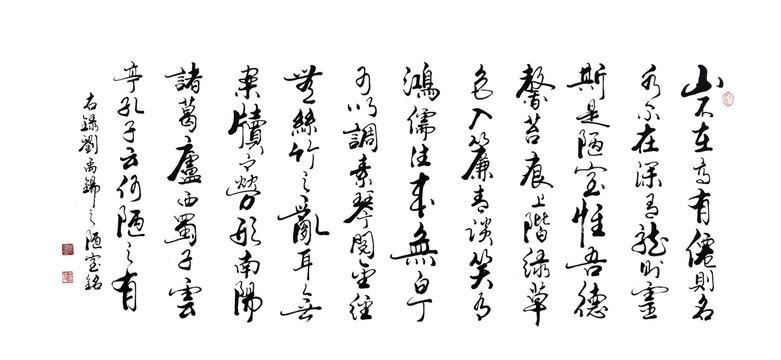 山不在高有僊則名
水不在深有龍則靈
斯是陋室惟吾德
馨苔痕上階綠草
色入簾青談笑有
鴻儒往來無白丁
可以調素琴閱金經
無絲竹之亂耳無
案牘之勞形南陽
諸葛廬西蜀子雲
亭孔子云何陋之有
右錄劉禹錫之陋室銘